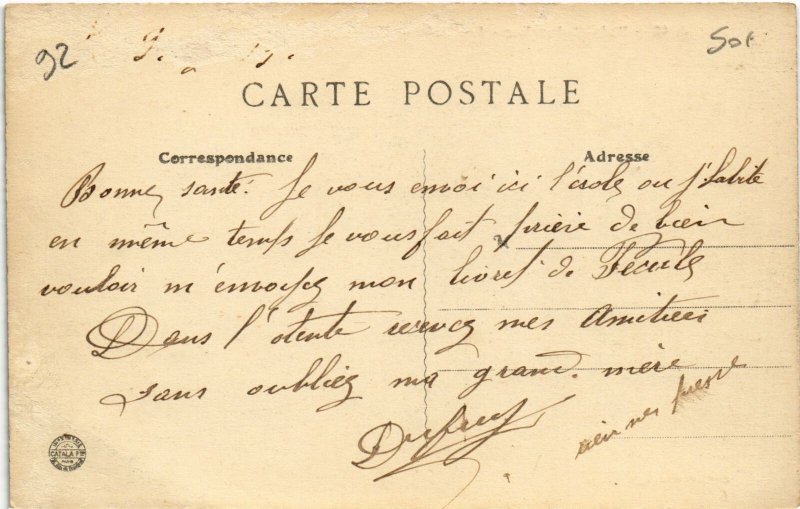 92
CARTE POSTALE
Correspondance
Adresse
Bonnes santé. Je vous envoi ici l'école ou j'habite
en même temps Je vous fait prière de bien
vouloir m'envoyez mon livret de
Dans l'atente recevez mes Amitiés
sans oubliez ma grand. mère
CATALA Frs